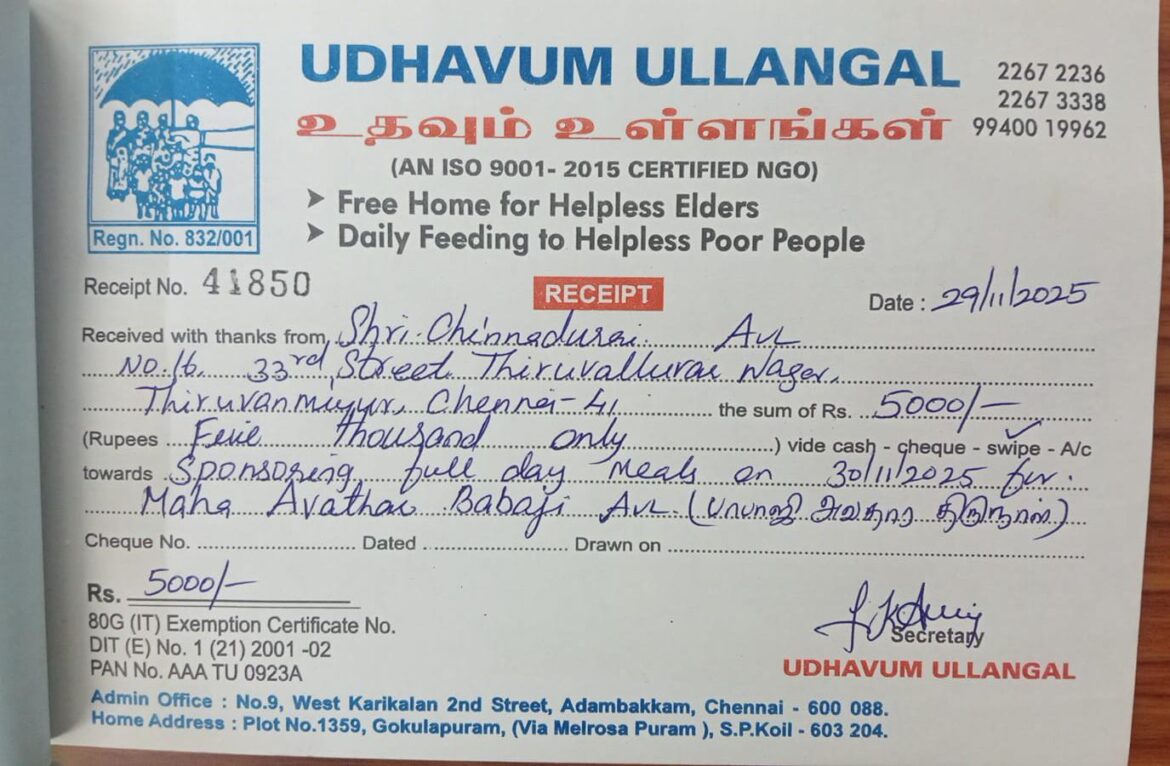 UDHAVUM ULLANGAL
2267 2236
2267 3338
99400 19962
உதவும் உள்ளங்கள்
(AN ISO 9001- 2015 CERTIFIED NGO)
➤ Free Home for Helpless Elders
➤ Daily Feeding to Helpless Poor People
Regn. No. 832/001
Receipt No. 41850
RECEIPT
Date : 29/11/2025
Received with thanks from Shri. Chinnadurai Avl
No.16, 33rd Street Thiruvalluvar Nagar,
Thiruvanmiyur, Chennai-41 the sum of Rs. 5000/-
(Rupees Five thousand only) vide cash - cheque - swipe - A/c
towards Sponsoring full day meals on 30/11/2025 for.
Maha Avathar Babaji Avl. (பாபாஜி அவதார திருநாள்)
Cheque No. Dated Drawn on
Rs. 5000/-
80G (IT) Exemption Certificate No.
DIT (E) No. 1 (21) 2001 -02
PAN No. AAA TU 0923A
Secretary
UDHAVUM ULLANGAL
Admin Office : No.9, West Karikalan 2nd Street, Adambakkam, Chennai - 600 088.
Home Address : Plot No.1359, Gokulapuram, (Via Melrosa Puram ), S.P.Koil - 603 204.